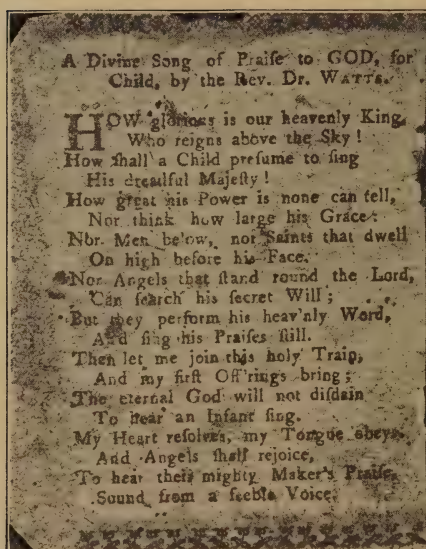 A Divine Song of Praiſe to GOD, for
Child, by the Rev. Dr. WATTS.
HOW glorious is our heavenly King,
Who reigns above the Sky !
How ſhall a Child preſume to ſing
His dreadful Majeſty !
How great his Power is none can tell,
Nor think how large his Grace :
Nor Men below, nor Saints that dwell
On high before his Face.
Nor Angels that ſtand round the Lord,
Can ſearch his ſecret Will ;
But they perform his heav'nly Word,
And ſing his Praiſes ſtill.
Then let me join this holy Train,
And my firſt Off'rings bring ;
The eternal God will not diſdain
To hear an Infant ſing.
My Heart reſolves, my Tongue obeys,
And Angels ſhall rejoice,
To hear their mighty Maker's Praiſe,
Sound from a feeble Voice.